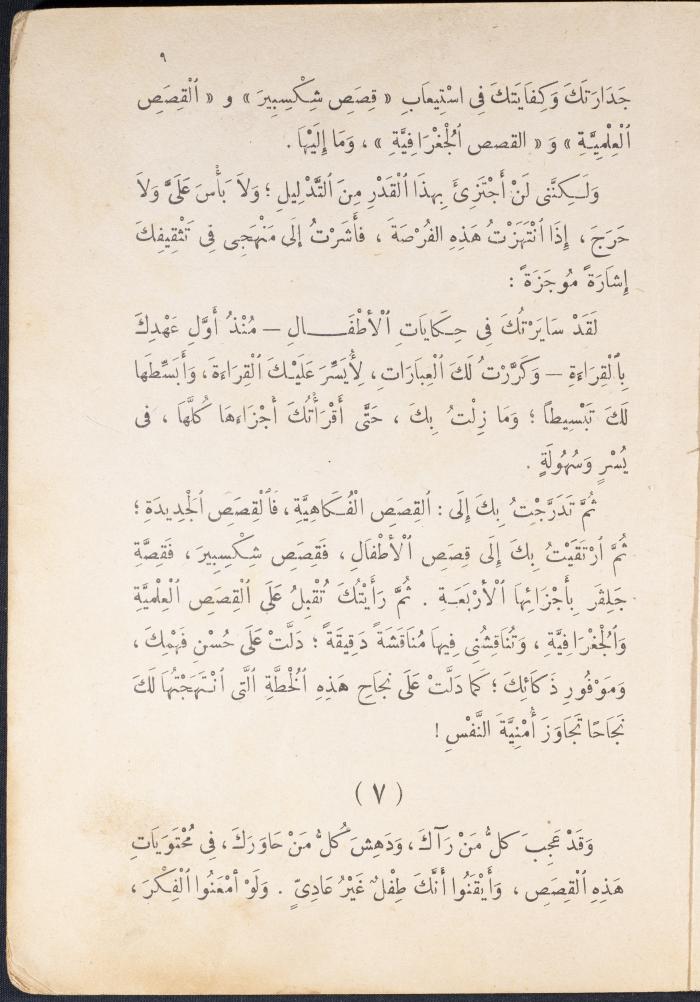 ٩
جَدَارَتَكَ وَكِفَايَتَكَ فِي اسْتِيعَابِ « قِصَصِ شِكْسِبِيرَ » و « الْقِصَصِ
الْعِلْمِيَّةِ » وَ « القصصِ الْجُغْرَافِيَّةِ » ، وَمَا إِلَيْهَا .
وَلَـٰكِنَّنِي لَنْ أَجْتَزِئَ بِهٰذَا الْقَدْرِ مِنَ التَّدْلِيلِ ؛ وَلَا بَأْسَ عَلَىَّ وَلَا
حَرَجَ ، إِذَا انْتَهَزْتُ هٰذِهِ الفُرْصَةَ ، فأَشَرْتُ إِلَى مَنْهَجِي فِي تَثْقِيفِكَ
إِشَارَةً مُوجَزَةً :
لَقَدْ سَايَرْتُكَ فِي حِكَايَاتِ الْأَطْفَـــالِ — مُنْذُ أَوَّلِ عَهْدِكَ
بِالْقِرَاءَةِ — وَكَرَّرْتُ لَكَ الْعِبَارَاتِ ، لِأُيَسِّرَ عَلَيْكَ الْقِرَاءَةَ ، وَأُبَسِّطَها
لَكَ تَبْسِيطاً ؛ وَمَا زِلْتُ بِكَ ، حَتَّى أَقْرَأْتُكَ أَجْزَاءَهَا كُلَّهَا ، فِي
يُسْرٍ وَسُهُولَةٍ .
ثُمَّ تَدَرَّجْتُ بِكَ إِلَى : القِصَصِ الْفُكَاهِيَّةِ ، فَالْقِصَصِ الْجَدِيدَةِ ؛
ثُمَّ ارْتَقَيْتُ بِكَ إِلَى قِصَصِ الْأَطْفَالِ ، فَقِصَصِ شِكْسِبِيرَ ، فَقِصَّةِ
جَلِفَر بِأَجْزَائِهَا الْأَرْبَعَـةِ . ثُمَّ رَأَيْتُكَ تُقْبِلُ عَلَى الْقِصَصِ الْعِلْمِيَّةِ
وَالْجُغْرَافِيَّةِ ، وَتُنَاقِشُنِي فِيهَا مُنَاقَشَةً دَقِيقَةً ؛ دَلَّتْ عَلَى حُسْنِ فَهْمِكَ ،
وَمَوْفُورِ ذَكَائِكَ ؛ كَمَا دَلَّتْ عَلَى نَجَاحِ هٰذِهِ الْخُطَّةِ الَّتِي انْتَهَجْتُهَا لَكَ
نَجَاحًا تَجَاوَزَ أُمْنِيَّةَ النَّفْسِ !
( ٧ )
وَقَدْ عَجِبَ كلُّ مَنْ رَآكَ ، وَدَهِشَ كُلُّ مَنْ حَاوَرَكَ ، فِي مُحْتَوَيَاتِ
هٰذِهِ الْقِصَصِ ، وَأَيْقَنُوا أَنَّكَ طِفْلٌ غَيْرُ عَادِيٍّ . وَلَوْ أَمْعَنُوا الْفِكْرَ ،